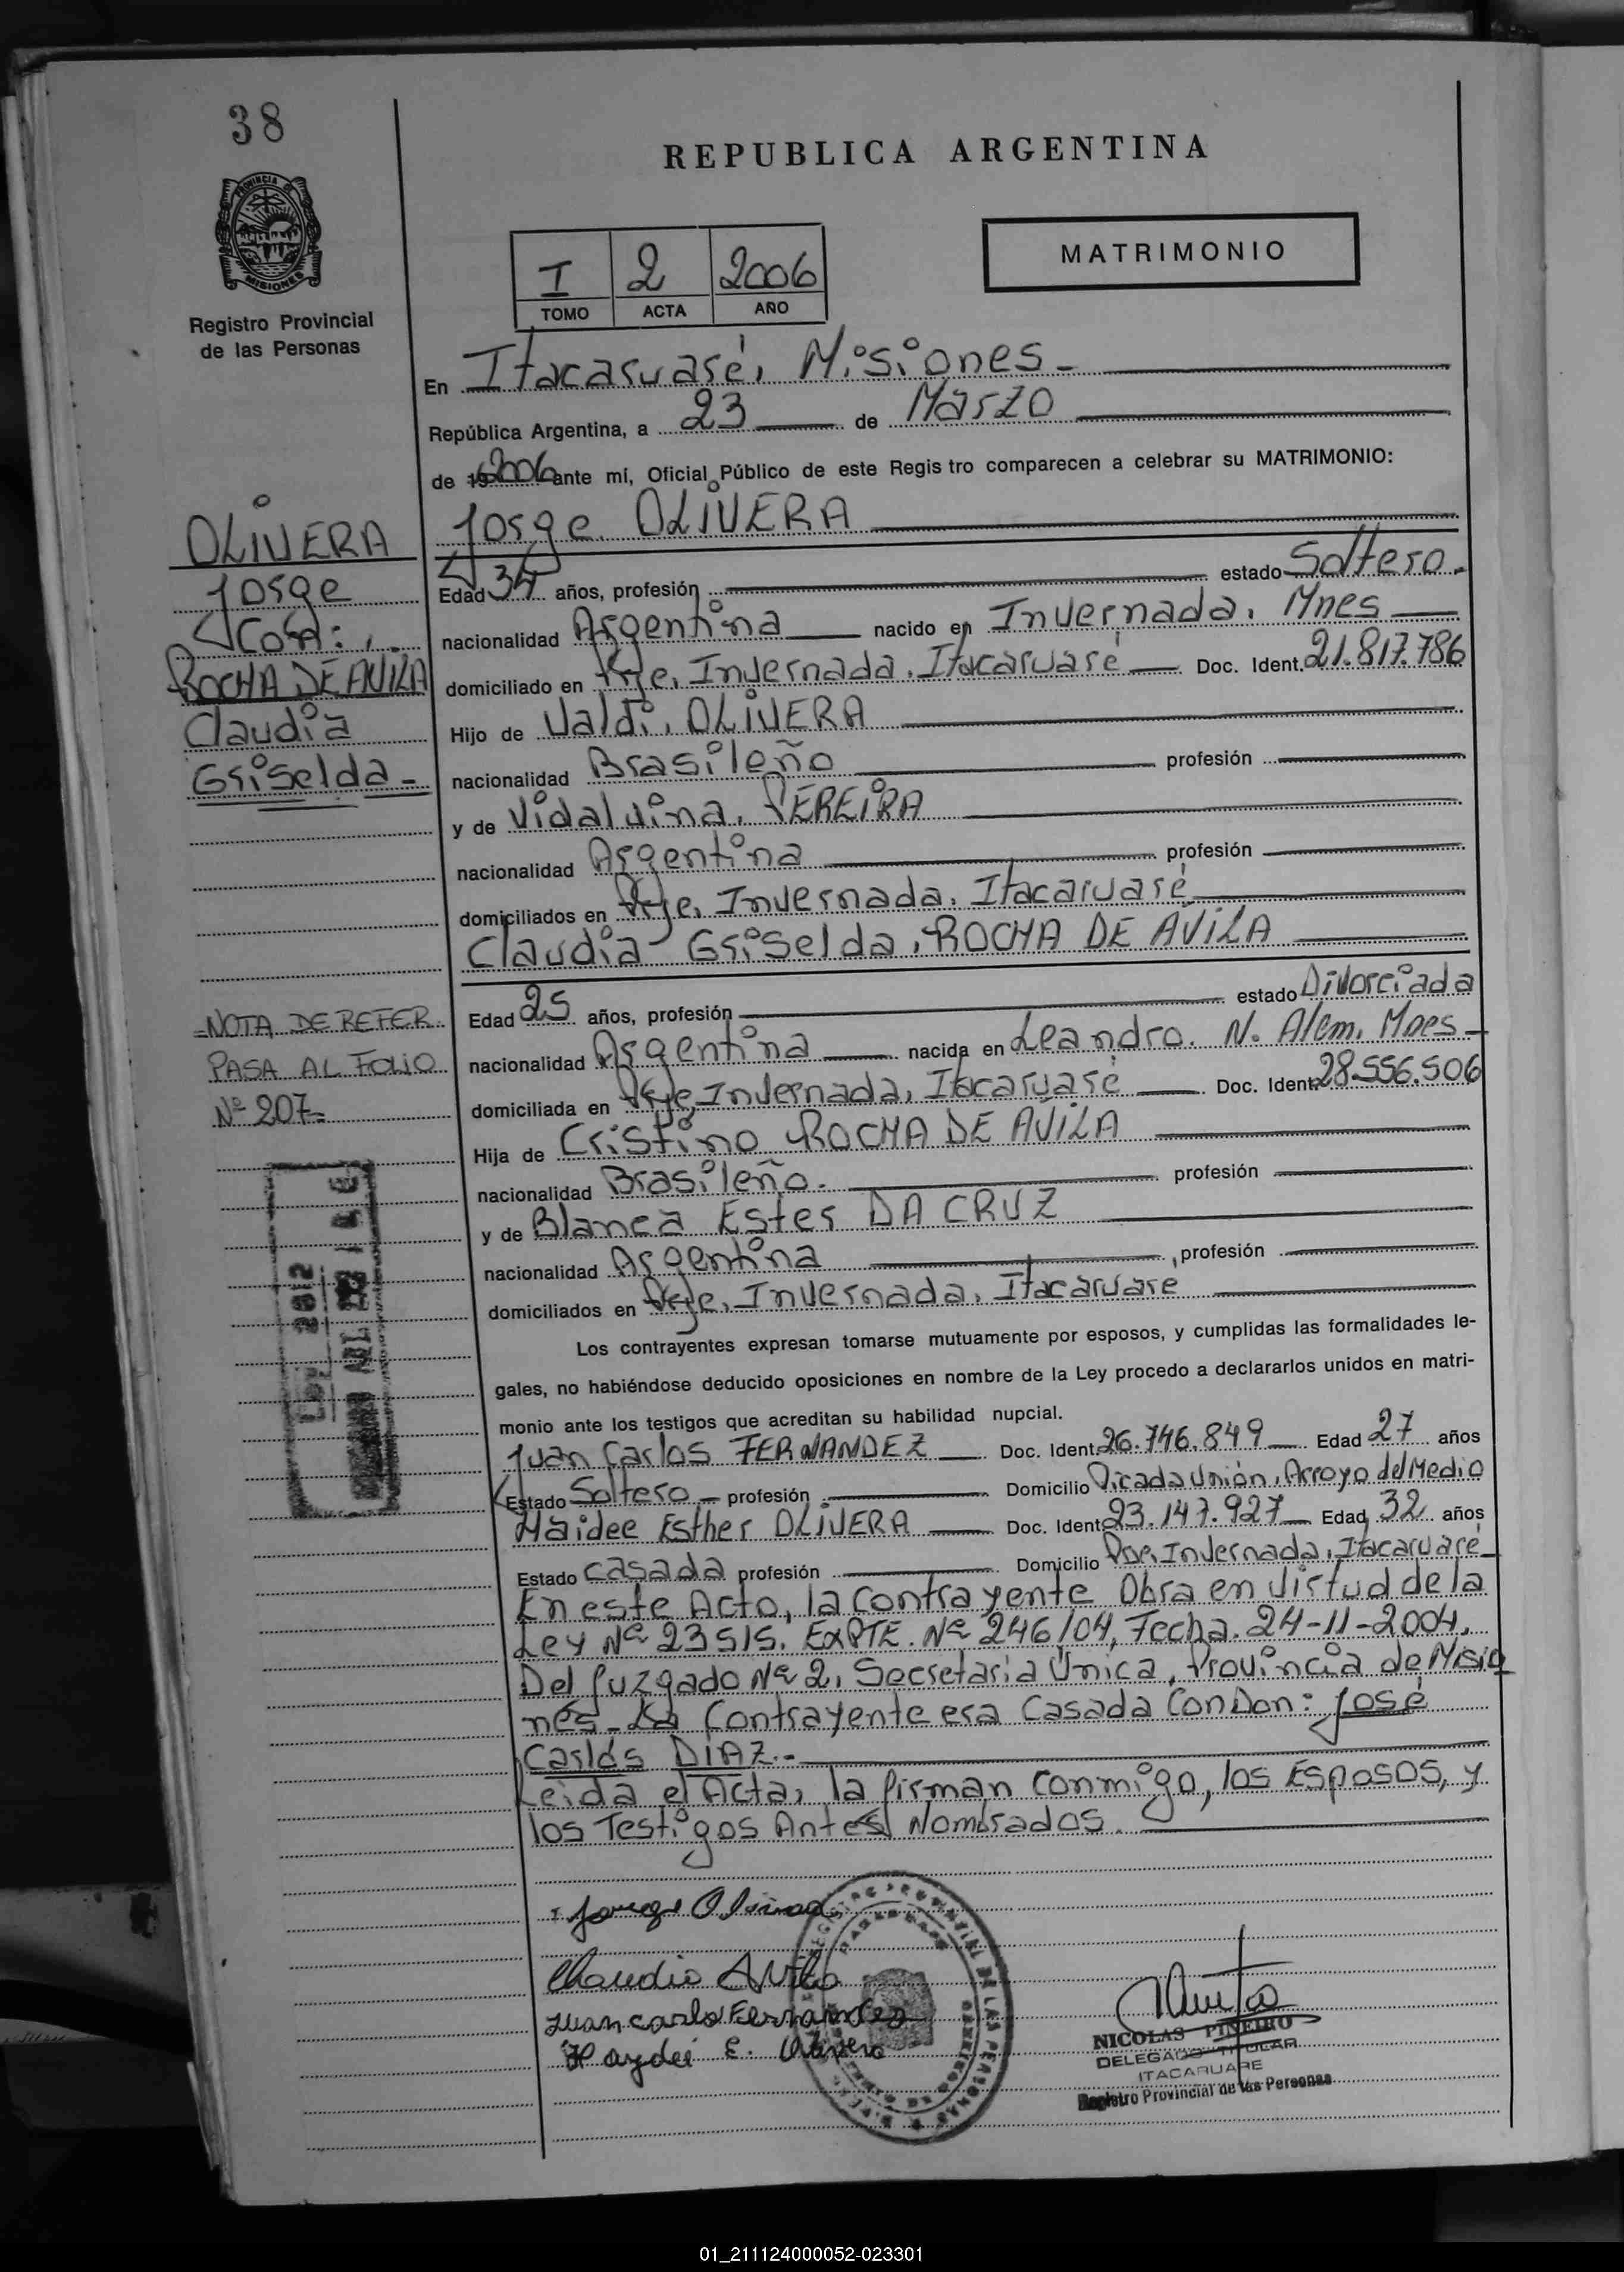 38
REPUBLICA ARGENTINA
PROVINCIA DE
MISIONES
Registro Provincial
de las Personas
I 2 2006
TOMO ACTA AÑO
MATRIMONIO
En Itacaruaré, Misiones.
República Argentina, a 23 de Marzo
de 2006 ante mí, Oficial Público de este Regis tro comparecen a celebrar su MATRIMONIO:
Jorge OLiVERA
Edad 34 años, profesión estado Soltero.
nacionalidad Argentina nacido en Invernada, Mnes
domiciliado en Pje, Invernada, Itacaruaré Doc. Ident. 21.817.786
Hijo de Valdi, OLiVERA
nacionalidad Brasileño profesión
y de Vidalvina, PEREiRA
nacionalidad Argentina profesión
domiciliados en Pje, Invernada, Itacaruaré
Claudia Griselda, ROCHA DE AViLA
Edad 25 años, profesión estado Divorciada
nacionalidad Argentina nacida en Leandro. N. Alem, Mnes-
domiciliada en Pje, Invernada, Itacaruaré Doc. Ident. 28.556.506
Hija de Cristino ROCHA DE AViLA
nacionalidad Brasileño. profesión
y de Blanca Ester DA CRUZ
nacionalidad Argentina, profesión
domiciliados en Pje, Invernada, Itacaruare
Los contrayentes expresan tomarse mutuamente por esposos, y cumplidas las formalidades le-
gales, no habiéndose deducido oposiciones en nombre de la Ley procedo a declararlos unidos en matri-
monio ante los testigos que acreditan su habilidad nupcial.
Juan Carlos FERNANDEZ Doc. Ident. 26.746.849 Edad 27 años
Estado Soltero profesión Domicilio Picada Unión, Arroyo del Medio
Haidee Esther OLiVERA Doc. Ident. 23.147.927 Edad 32 años
Estado casada profesión Domicilio Invernada, Itacaruaré
En este Acto, la contrayente Obra en virtud de la
Ley Nº 23515. EXPTE. Nº 246/04, Fecha. 24-11-2004,
Del Juzgado Nº 2, Secretaria Única, Provincia de Misio
nes- La Contrayente era Casada Con Don: José
Carlos DiAZ.-
Leida el Acta, la firman conmigo, los Esposos, y
los Testigos Antes Nombrados.
Jorge Olivera
Claudia Avila
Juan carlo Fernandez
Haydeé E. Olivera
NICOLAS PIÑEIRO
DELEGADO TITULAR
ITACARUARE
Registro Provincial de las Personas
OLiVERA
Jorge
Con:
ROCHA DE AViLA
Claudia
Griselda-
=NOTA DE REFER.
PASA AL FOLIO
Nº 207=
01_211124000052-023301